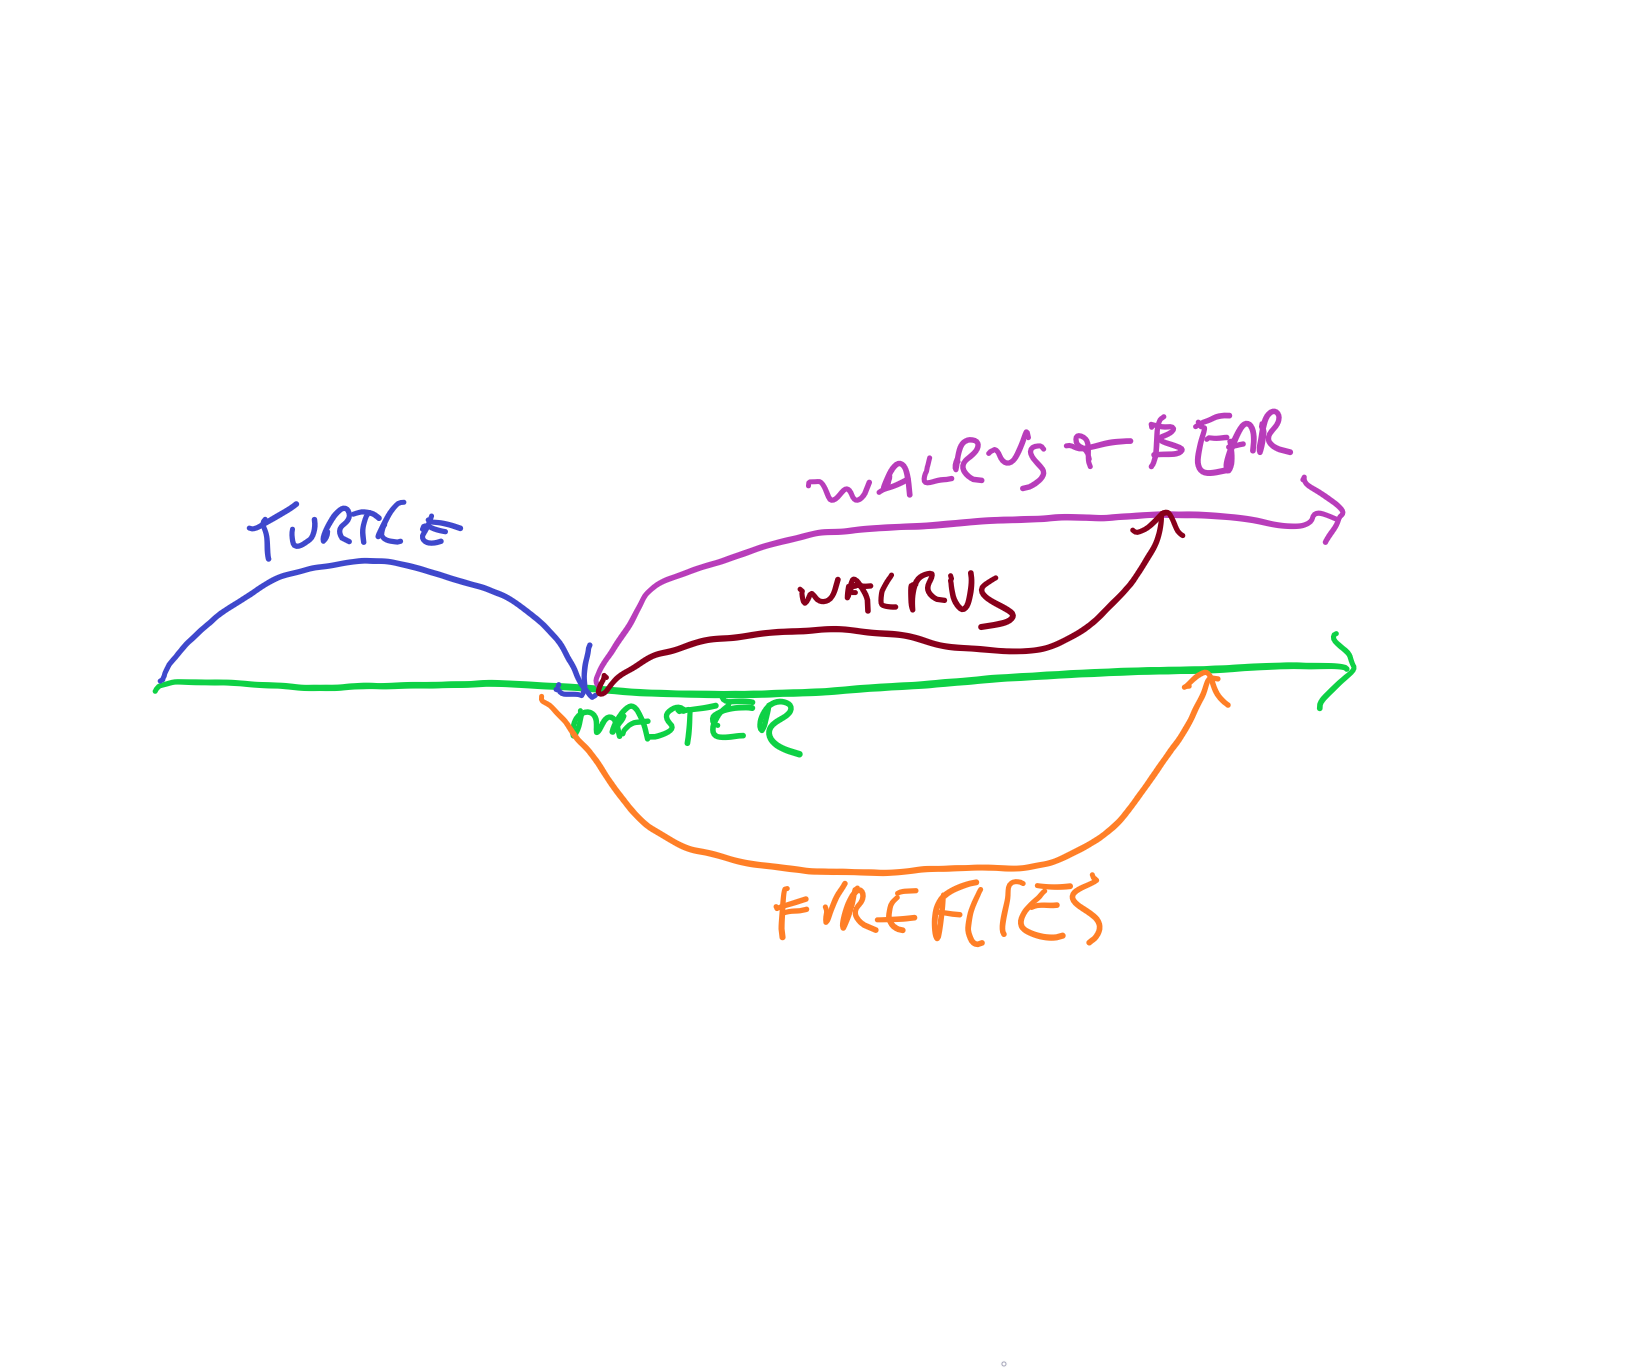 WALRUS + BEAR
TURTLE
WALRUS
MASTER
FIREFLIES